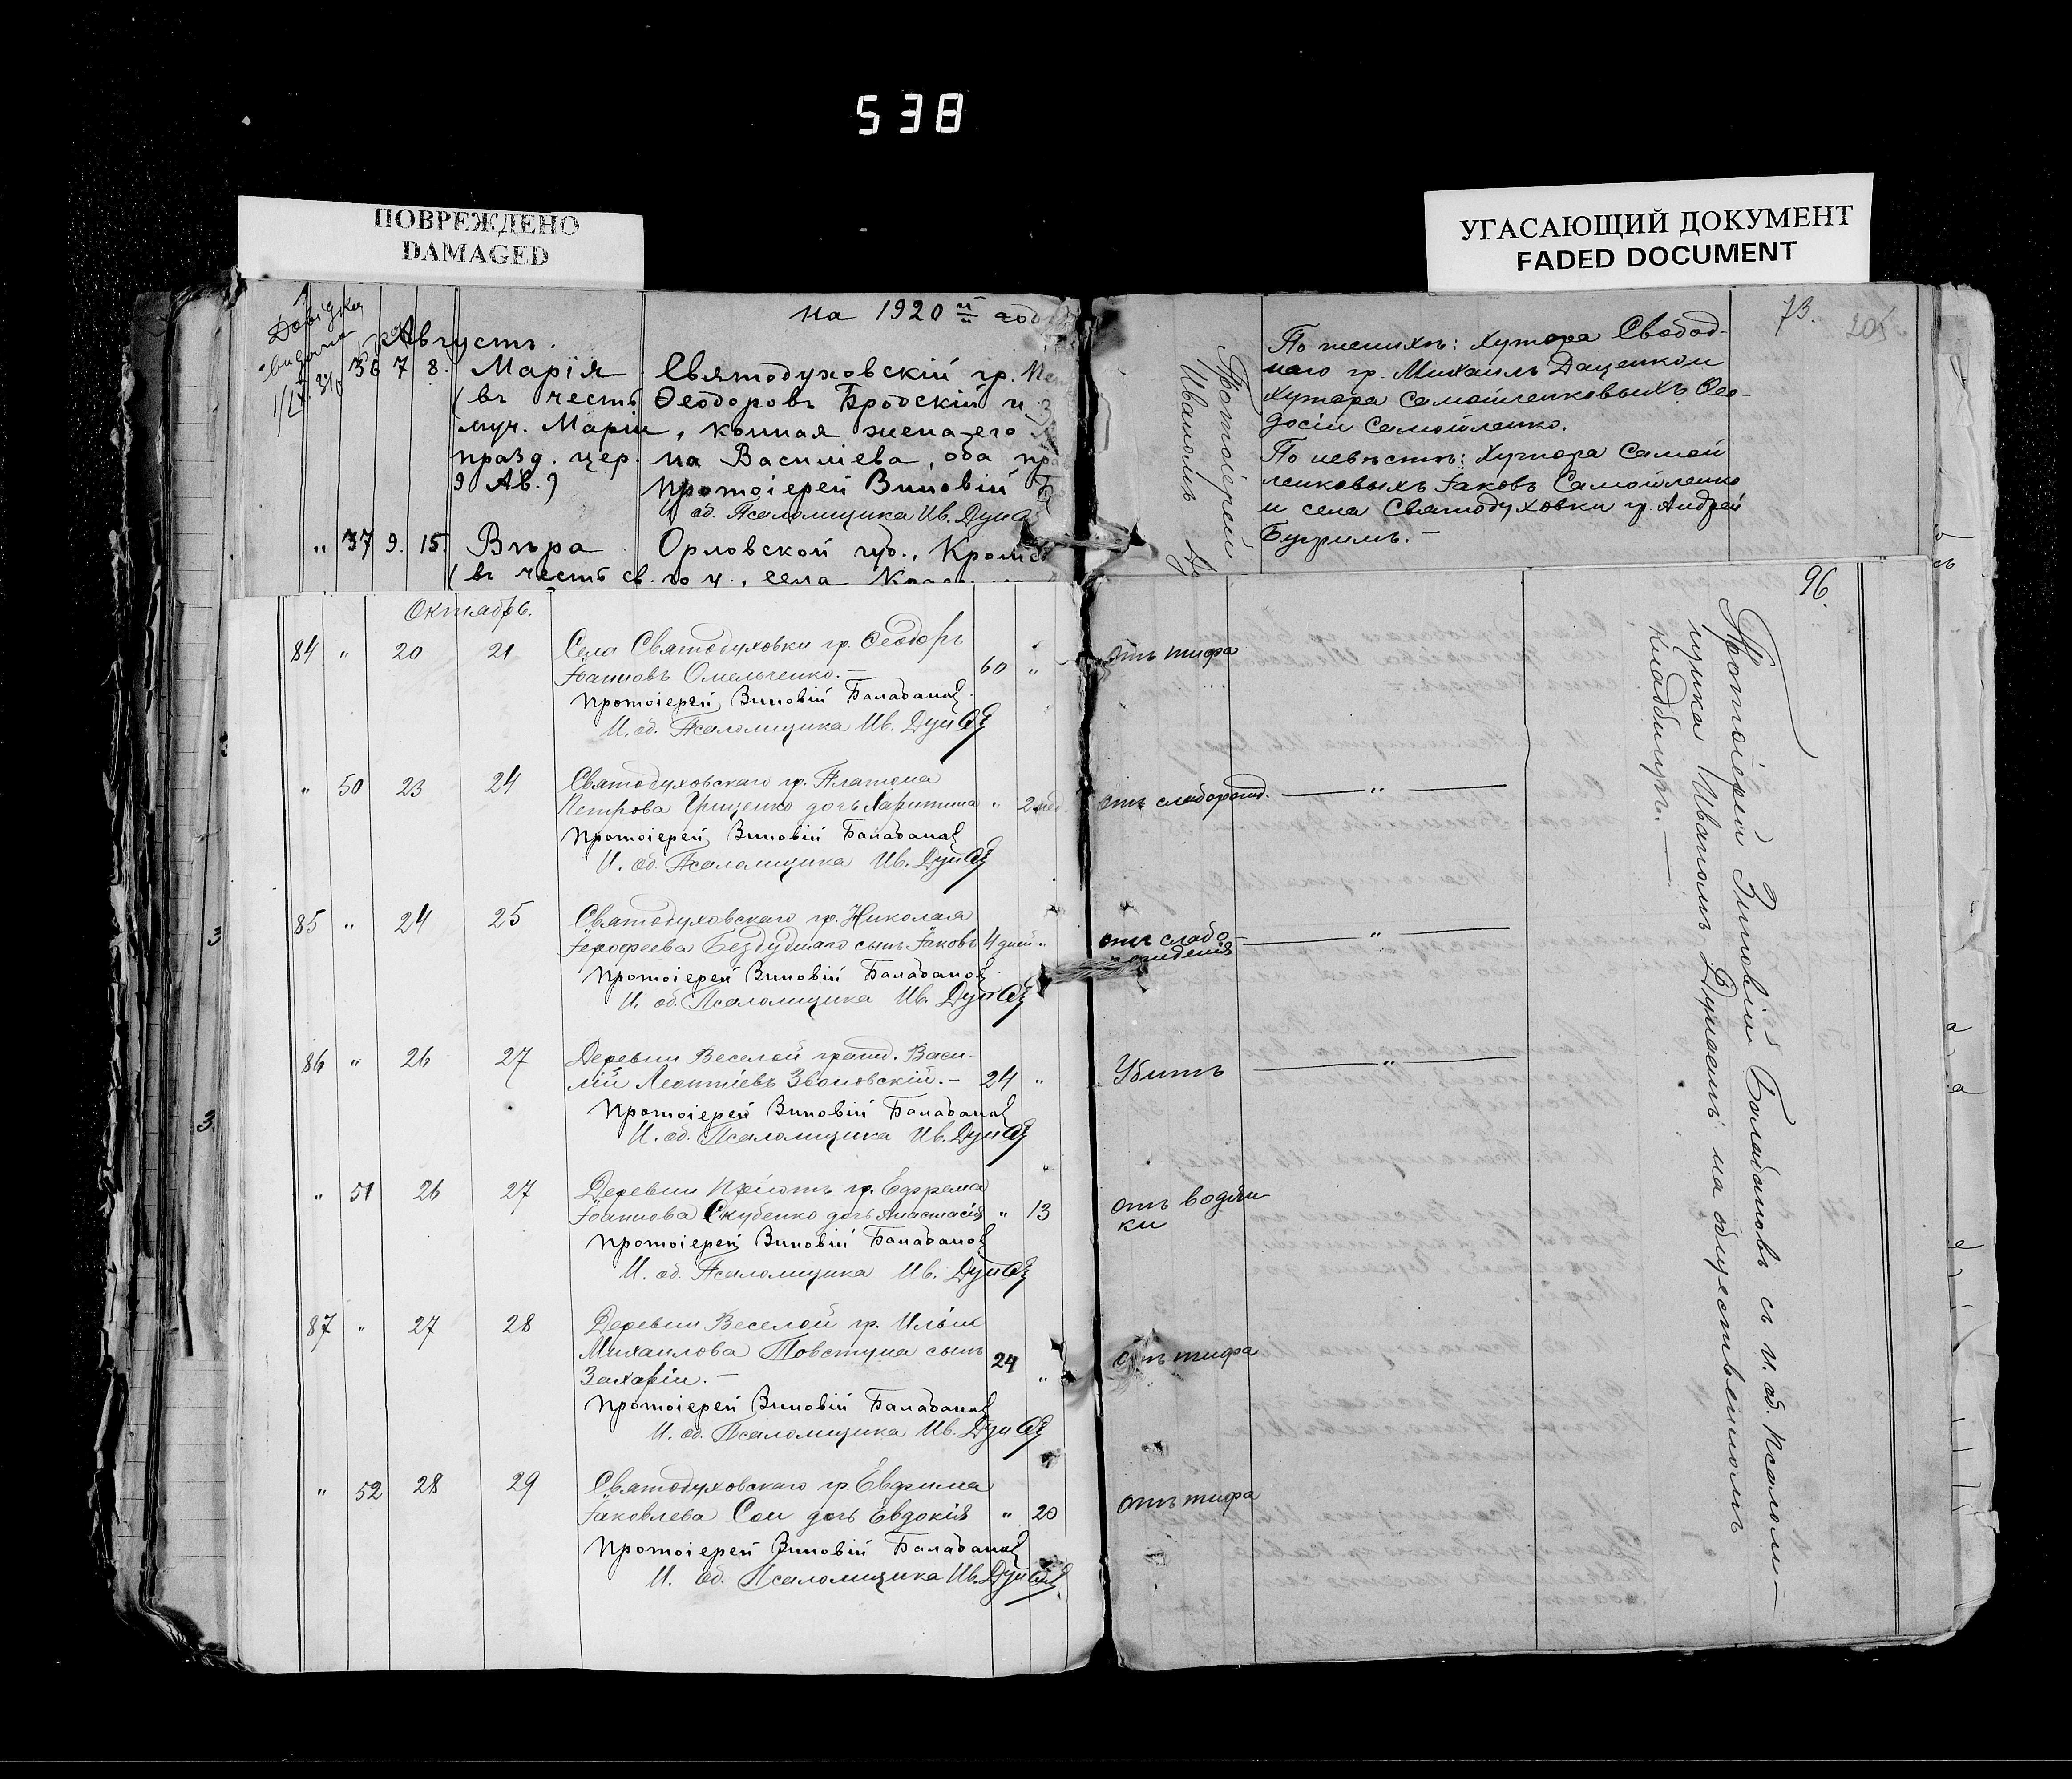 538
ПОВРЕЖДЕНО
DAMAGED
УГАСАЮЩИЙ ДОКУМЕНТ
FADED DOCUMENT
на 1920 й год
Августъ.
36 7 8. Марія Святодуховскій гр.
(въ честь Ѳеодоровъ Бродскій и
муч. Маріи, конная жена его
празд. цер. на Василіева, оба
9 Ав.) Протоіерей Зиновій
об. Псаломщика Ив.
" 37 9. 15. Вѣра Орловской губ.,
(въ честь св. села
73.
По женихѣ: Хутора Свобод-
наго гр. Михаилъ Даценко и
Хутора Самойленковыхъ Ѳео-
досій Самойленко.
По невѣстѣ: Хутора Самой
ленковыхъ Іаковъ Самойленко
и села Святодуховки гр. Андрей
Бугримъ.-
Протоіерей
Иваномъ
Октябрь.
84 " 20 21 Села Святодуховки гр. Ѳеодоръ
Іоанновъ Омельченко.- 60 " отъ тифа
Протоіерей Зиновій Балабановъ
И. об. Псаломщика Ив.
" 50 23 24 Святодуховскаго гр. Платона
Петрова Грищенко дочь Харитина " 2 нед. отъ слаборожд. — " —
Протоіерей Зиновій Балабановъ
И. об. Псаломщика Ив.
85 " 24 25 Святодуховскаго гр. Николая
Іерофеева Бездуднаго сынъ Іаковъ 4 дней " отъ слабо- — " —
рожденія
Протоіерей Зиновій Балабановъ
И. об. Псаломщика Ив.
86 " 26 27 Деревни Веселой гражд. Васи-
лій Леонтіевъ Звоновскій.- 24 " Убитъ — " —
Протоіерей Зиновій Балабановъ
И. об. Псаломщика Ив.
" 51 26 27 Деревни Пріютъ гр. Ефрема
Іоаннова Скубенко дочь Анастасія " 13 отъ водян-
ки
Протоіерей Зиновій Балабановъ
И. об. Псаломщика Ив.
87 " 27 28 Деревни Веселой гр. Ильи
Михаилова Повстуна сынъ 24 " отъ тифа
Захарій.-
Протоіерей Зиновій Балабановъ
И. об. Псаломщика Ив.
" 52 28 29 Святодуховскаго гр. Евфима
Іаковлева Сои дочь Евдокія " 20 отъ тифа
Протоіерей Зиновій Балабановъ
И. об. Псаломщика Ив.
96.
Протоіерей Зиновій Балабановъ съ и. об. Псалом-
щика Иваномъ на общественномъ
кладбищѣ.-